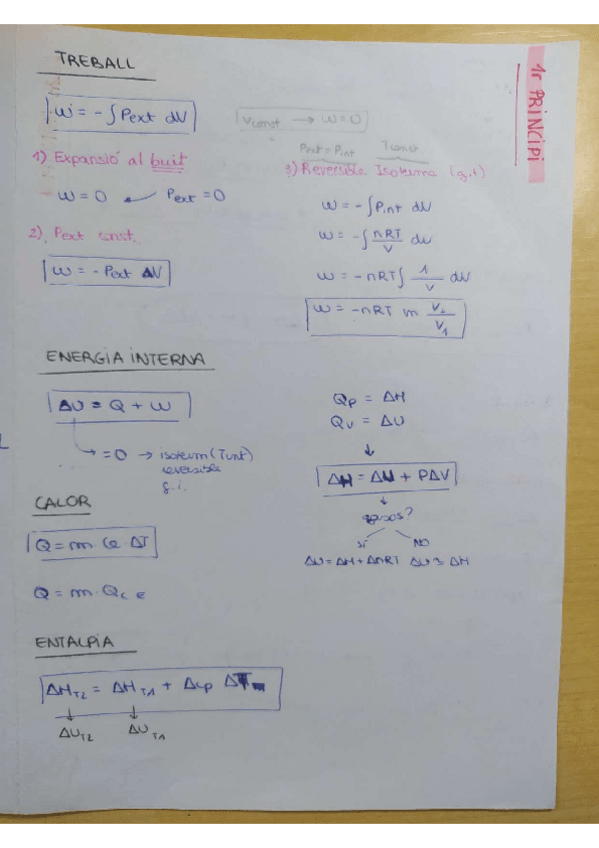 1r PRINCIPI
TREBALL
W = - ∫ Pext dV
Vconst → W = 0
1) Expansió al buit
W = 0 ← Pext = 0
2) Pext const.
W = - Pext ΔV
Pext = Pint Tconst
3) Reversible Isoterma (g.i)
W = - ∫ Pint dV
W = - ∫ nRT/V dV
W = - nRT ∫ 1/V dV
W = - nRT ln V2/V1
ENERGIA INTERNA
ΔU = Q + W
= 0 → isoterm (Tcnt)
reversible
g.i.
Qp = ΔH
Qv = ΔU
↓
ΔH = ΔU + PΔV
↓
gasos?
SÍ NO
ΔU = ΔH + ΔnRT ΔU ≈ ΔH
CALOR
Q = m · Ce ΔT
Q = m ·
ENTALPIA
ΔHT2 = ΔHT1 + Δcp ΔT
↓ ↓
ΔUT2 ΔUT1